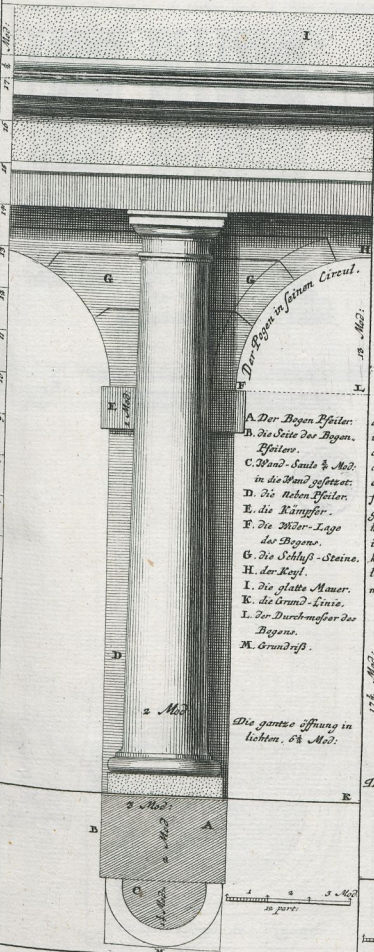 I
G
G
H
Der Bogen in seinen Circul.
13 Mod:
E
1 Mod:
F
L
A. Der Bogen Pfeiler.
B. die Seite des Bogen-
Pfeilers.
C. Wand-Saule ¾ Mod:
in die Wand gesetzet.
D. die neben Pfeiler.
E. die Kämpfer.
F. die Wider-Lage
des Bogens.
G. die Schluß-Steine.
H. der Keyl.
I. die glatte Mauer.
K. die Grund-Linie.
L. der Durchmesser des
Bogens.
M. Grundriß.
D
2 Mod
Die gantze öffnung in
lichten. 6½ Mod:
K
3 Mod:
B
A
2 Mod
C
1 2 3 Mod
12 part: